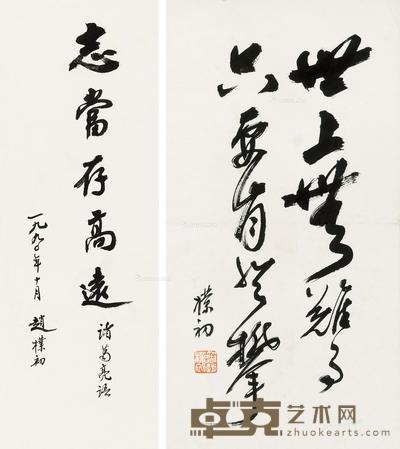 志當存高遠
諸葛亮語
一九九〇年十月 趙樸初
世上無難事
只要肯登攀
樸初
卓克艺术网
www.zhuokearts.com